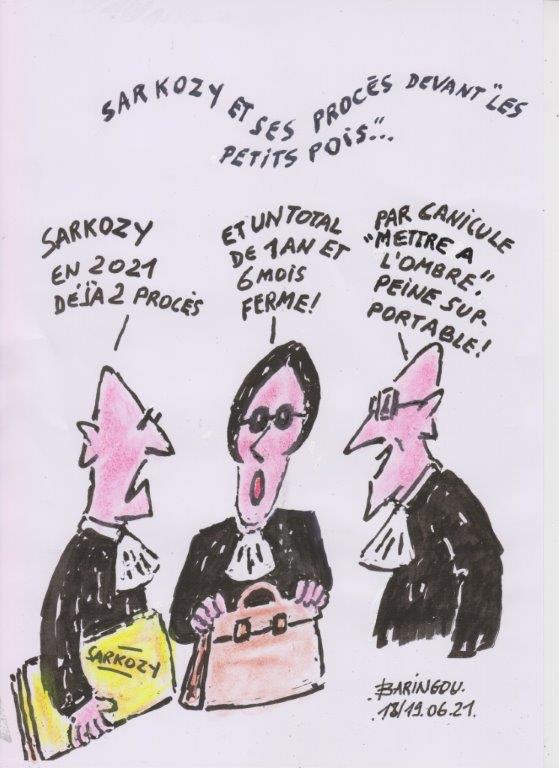 SARKOZY ET SES PROCÈS DEVANT "LES
PETITS POIS"...
SARKOZY
EN 2021
DÉJÀ 2 PROCÈS
ET UN TOTAL
DE 1 AN ET
6 MOIS
FERME!
PAR CANICULE
"METTRE A
L'OMBRE,"
PEINE SUP-
PORTABLE!
SARKOZY
BARINGOU.
18/19.06.21.